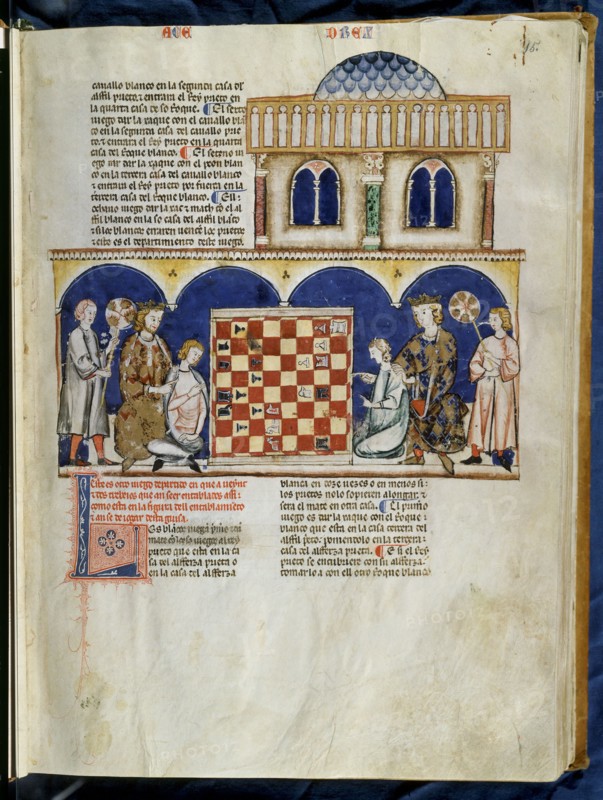 AXE
DREX
15.
cauallo blanco en la segunda casa del
alffil prieto. & entrara el Rey prieto en
la quarta casa de so Roque. El sexto
iuego dar la xaque con el cauallo blā
co en la segunda casa del cauallo prie
to. & entrara el Rey prieto en la quarta
casa del Roque blanco. El seteno iu
ego dar la xaque con el peon blan
co en la tercera casa del cauallo blanco
& entrara el Rey prieto por fuerça en la
tercera casa del Roque blanco. El
ochauo iuego dar la xac & math con el al
ffil blanco en la casa del alffil blāco
& si los blancos erraren uence los prietos
& esto es el departimiento deste iuego.
Este es otro iuego departido en que a ueynte
& dos trebeios que an seer entablados assi
como estan en la figura dell entablamiento
& an se de iogar desta guisa.
Los blancos iuegan primero
mate el so iuego al Rey
prieto que esta en la ca
sa del alfferza prieta o
en la casa del alfferza
blanca en doze uezes o en menos si
los prietos nolo sopieren alongar. &
sera el mate en otra casa. El primo
iuego es dar la xaque con el Roque
blanco que esta en la casa tercera del
alffil prieto. poniendolo en la tercera
casa del alfferza prieta. E si el Rey
prieto se encubriere con su alfferza.
tomarlo a con ell otro Roque blanco